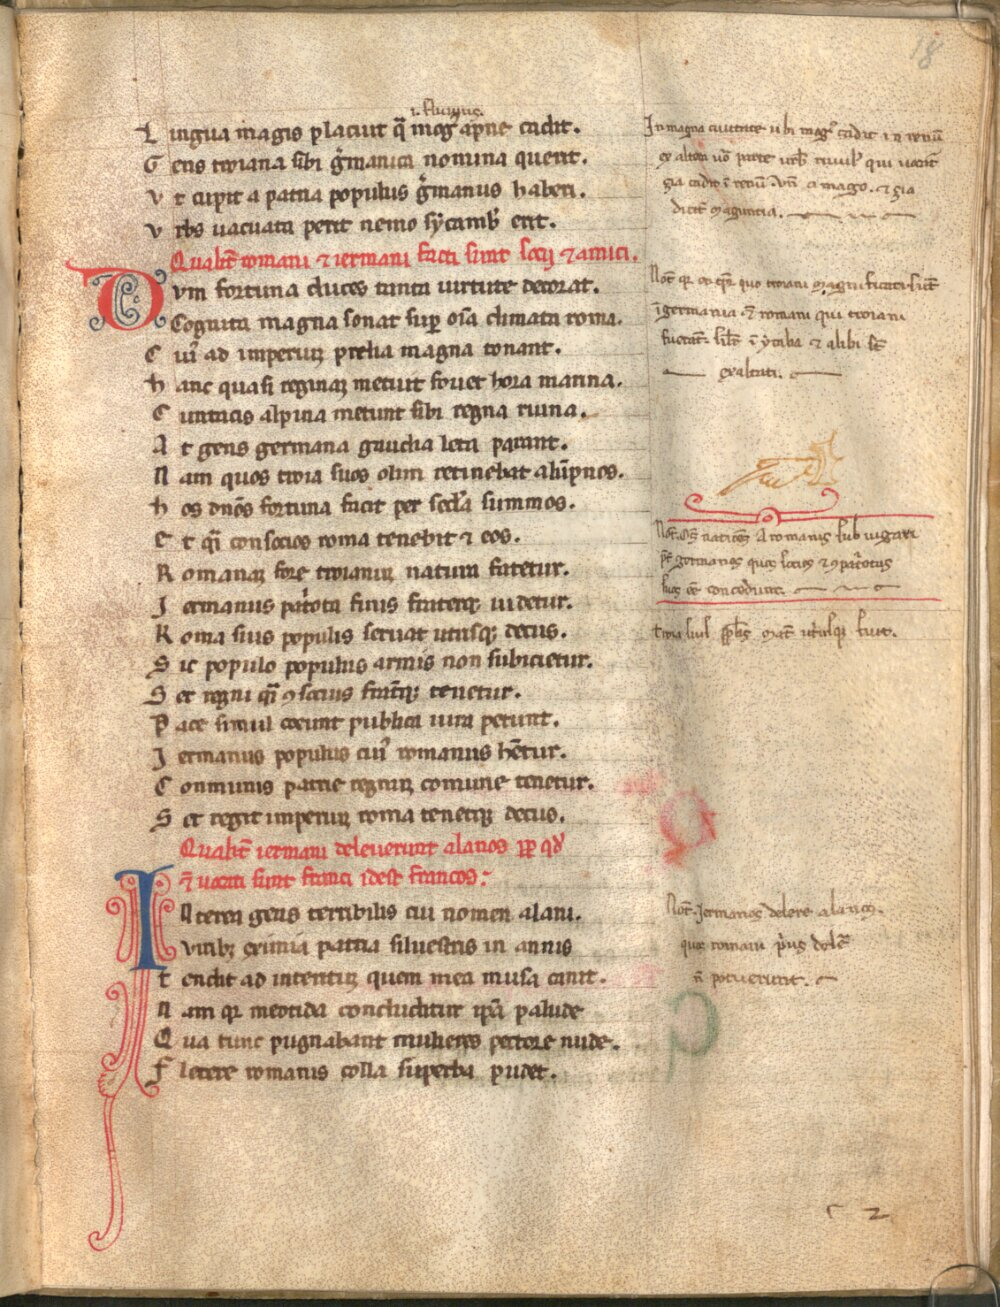 18
.i. fluuius.
Lingua magis placuit q̄ mogꝰ apne cadit.
Gens troiana sibi g̃manica nomina querit.
Vt cupit a patria populus g̃manus haberi.
Vrbs uacuata perit nemo sycamb̃ erit.
Qualit̃ romani ⁊ iermani facti sunt socij ⁊ amici.
Dum fortuna duces tanta uirtute decorat.
Cognita magna sonat sup̱ oĩa climata roma.
Cuiꝰ ad imperiuꝫ prelia magna tonant.
hanc quasi reginaꝫ metuit fouet hora marina.
Cuntacis alpina metunt sibi regna ruina.
At gens germana gaudia leta parant.
Nam quos troia suos olim retinebat alũpnos.
hos dños fortuna facit per secła summos.
Et q̃i consocios roma tenebit ⁊ eos.
Romanaꝫ fore troianuꝫ natura fatetur.
Iermanus pat̃ota suus fraterqꝫ uidetur.
Roma suis populis seruat utrisqꝫ decus.
Sic populo populus armis non subicietur.
Set regni q̃i ꝯsocius frat̃qꝫ tenetur.
Pace simul coeunt publica iura petunt.
Iermanus populus ciuiꝰ romanus hẽtur.
Conmunis patrie regnuꝫ comune tenetur.
Set regit imperiuꝫ roma tenetqꝫ decus.
Qualit̃ iermani deleuerunt alanos ꝓp̱ qđ
⁊ uocati sunt franci idest francos:
Interea gens terribilis cui nomen alani.
Viribꝫ eximia patria siluestris in annis
tendit ad intentuꝫ quem mea musa canit.
Nam qꝛ meotida concluditur ip̃a palude
Qua tunc pugnabant mulieres pectore nude.
Flectere romanis colla superba pudet.
In magna ciuitate ubi mogꝰ cadit in renũ
ex altera uõ parte urb̃ riuulꝰ qui uocat̃
zia cadit ĩ renũ. Vñ a mago. ⁊ zia
dicit̃ maguntia.
Not̃ qꝛ eo tp̃r quo troiani magnificati sũt
ĩ germania. ⁊ romani qui troiani
fuerant. sił̃ ĩ ytalia ⁊ alibi st̃
exaltati.
Not̃. Oẽs nationes A romanis subiugari
pret̃ germanos quos socios ⁊ ꝯpat̃otas
suos eẽ concedunt.
Not̃. Iermanos delere alanos.
quos romani p̃us delẽ
ñ potuerunt.
c 2